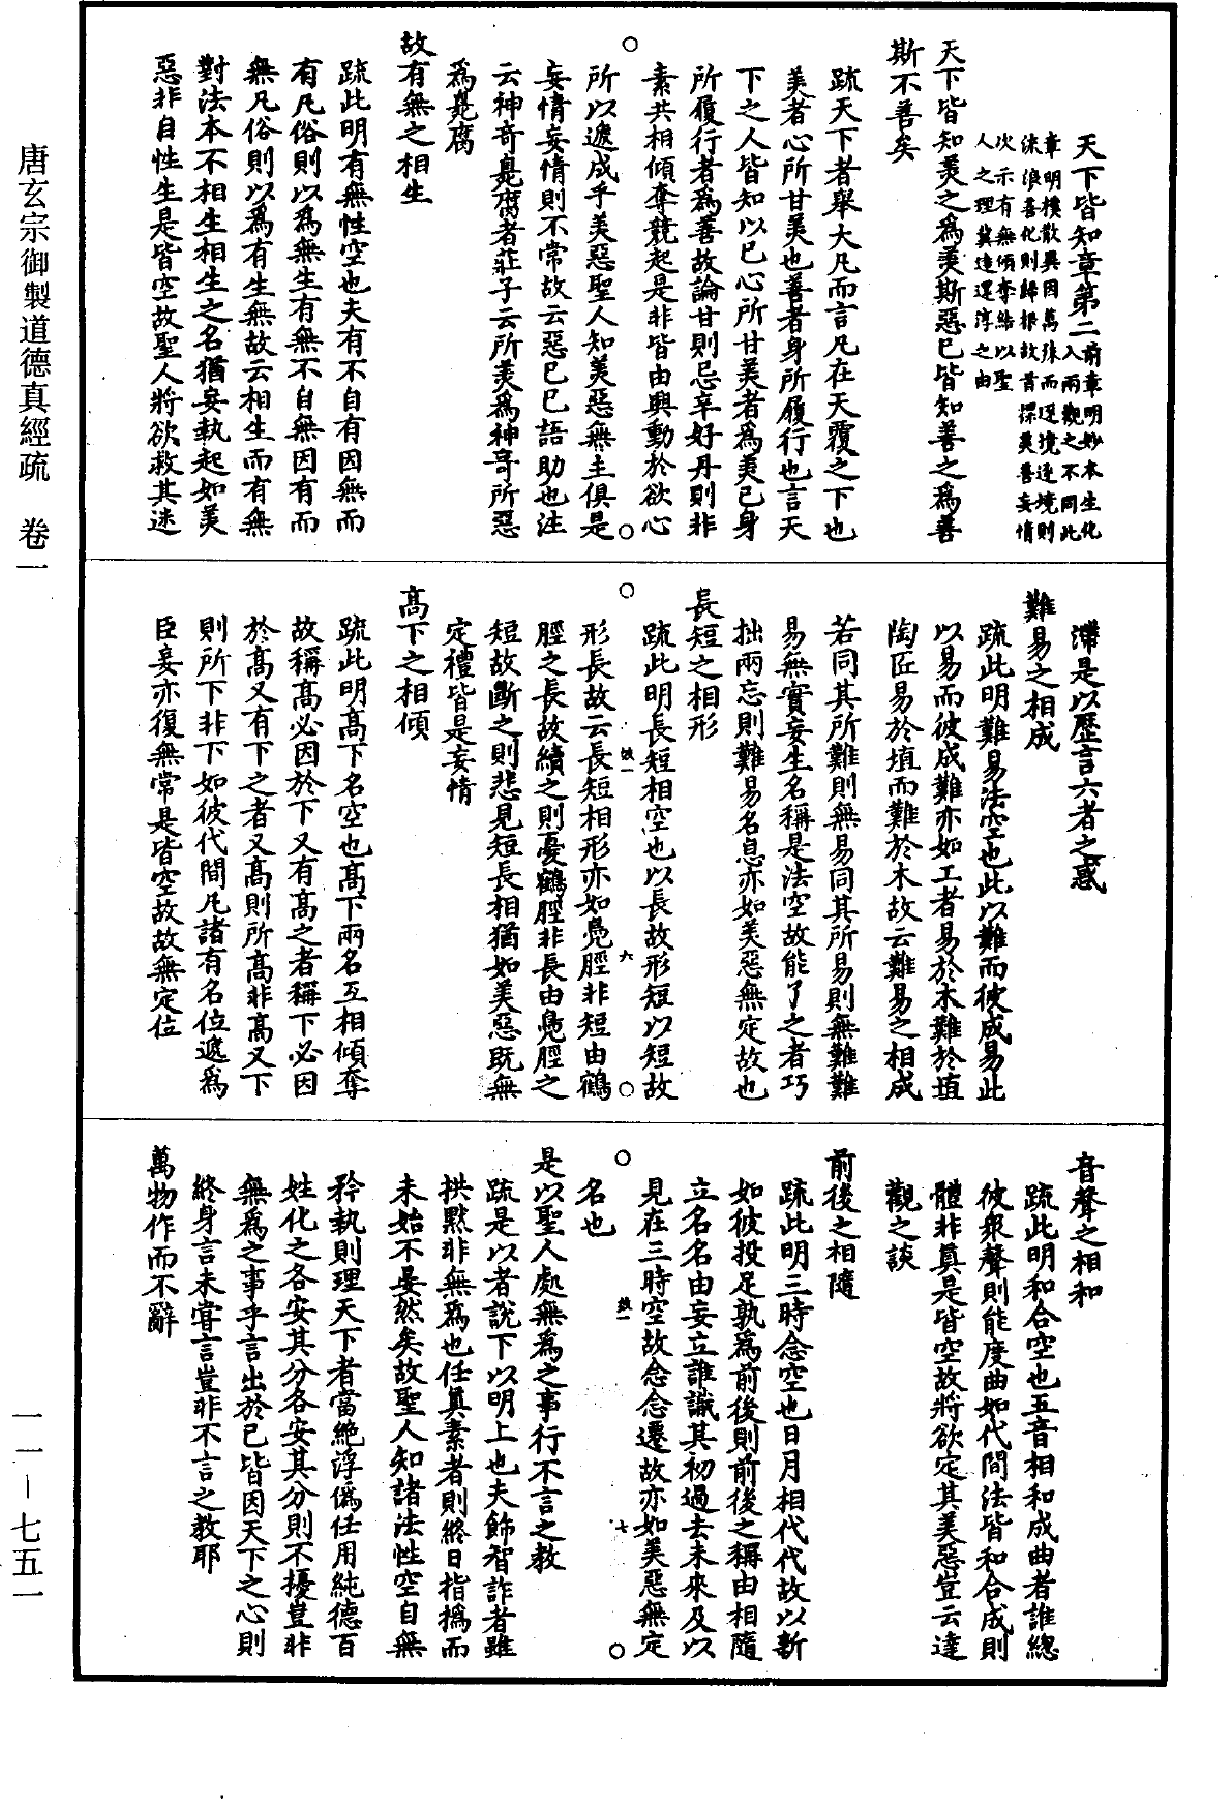 唐玄宗御製道德真經疏　卷一
一一—七五一
天下皆知章第二前章明妙本生化入兩觀之不同此
章明樸散異因萬殊而逐境逐境則
流浪善化則歸根故首標美善妄情
次示有無傾奪結以聖
人之理冀達還淳之由
天下皆知美之爲美斯惡已皆知善之爲善
斯不善矣
疏天下者舉大凡而言凡在天覆之下也
美者心所甘美也善者身所履行也言天
下之人皆知以已心所甘美者爲美已身
所履行者爲善故論甘則忌辛好丹則非
素共相傾奪競起是非皆由興動於欲心
所以遞成乎美惡聖人知美惡無主俱是
妄情妄情則不常故云惡已已語助也注
云神奇臰腐者莊子云所美爲神奇所惡
爲臰腐
故有無之相生
疏此明有無性空也夫有不自有因無而
有凡俗則以爲無生有無不自無因有而
無凡俗則以爲有生無故云相生而有無
對法本不相生相生之名猶妄執起如美
惡非自性生是皆空故聖人將欲救其迷
滯是以歷言六者之惑
難易之相成
疏此明難易法空也此以難而彼成易此
以易而彼成難亦如工者易於木難於埴
陶匠易於埴而難於木故云難易之相成
若同其所難則無易同其所易則無難難
易無實妄生名稱是法空故能了之者巧
拙兩忘則難易名息亦如美惡無定故也
長短之相形
疏此明長短相空也以長故形短以短故
形長故云長短相形亦如鳧脛非短由鶴
脛之長故續之則憂鶴脛非長由鳧脛之
短故斷之則悲見短長相猶如美惡既無
定禮皆是妄情
高下之相傾
疏此明高下名空也高下兩名互相傾奪
故稱高必因於下又有高之者稱下必因
於高又有下之者又高則所高非高又下
則所下非下如彼代間凡諸有名位遞爲
臣妾亦復無常是皆空故故無定位
音聲之相和
疏此明和合空也五音相和成曲者誰總
彼衆聲則能度曲如代間法皆和合成則
體非真是皆空故將欲定其美惡豈云達
觀之談
前後之相隨
疏此明三時念空也日月相代代故以新
如彼投足孰爲前後則前後之稱由相隨
立名名由妄立誰識其初過去未來及以
見在三時空故念念遷故亦如美惡無定
名也
是以聖人處無爲之事行不言之教
疏是以者說下以明上也夫飾智詐者雖
拱默非無爲也任真素者則終日指撝而
未始不晏然矣故聖人知諸法性空自無
矜執則理天下者當絕浮僞任用純德百
姓化之各安其分各安其分則不擾豈非
無爲之事乎言出於已皆因天下之心則
終身言未嘗言豈非不言之教耶
萬物作而不辭